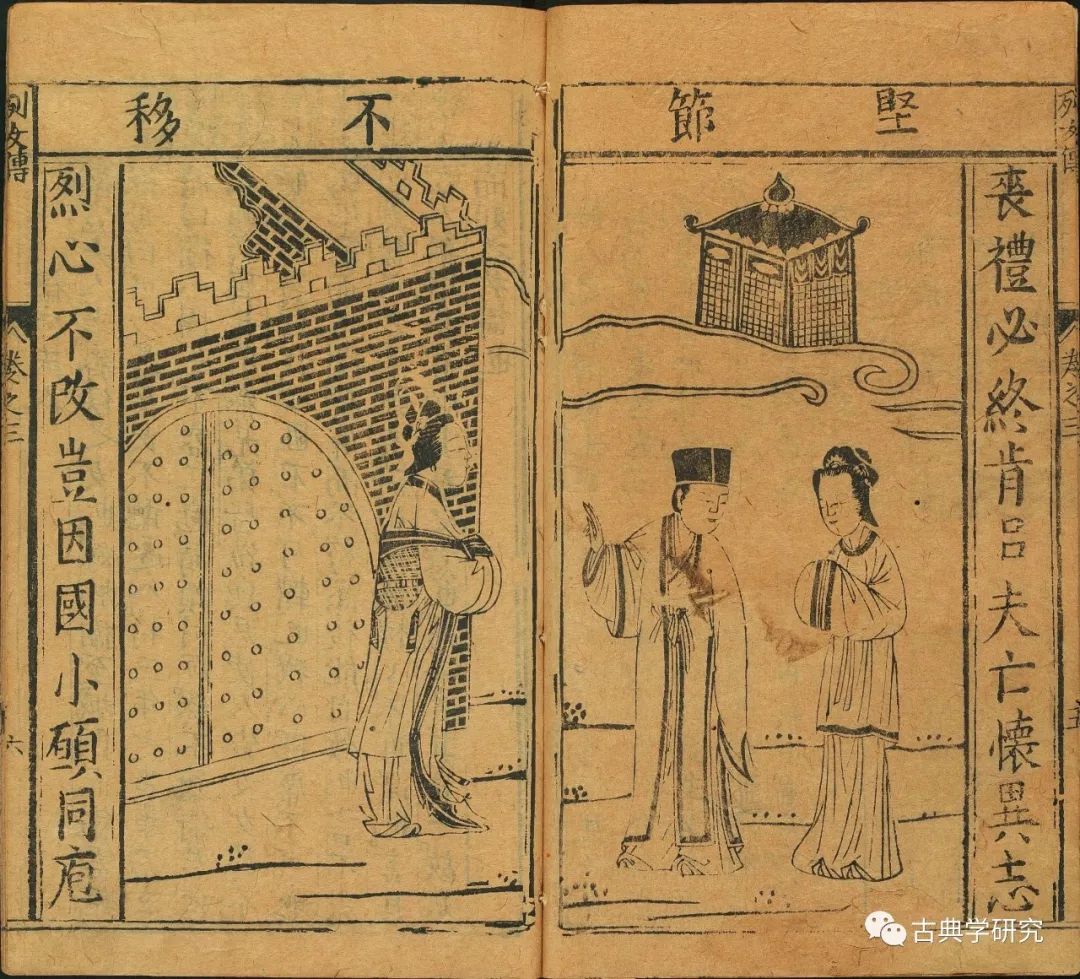 列女傳
卷之三
五
堅節
喪禮必終肯吕夫亡懷異志
不移
烈心不改豈因國小碩同庖
列女傳
卷之三
六
古典学研究